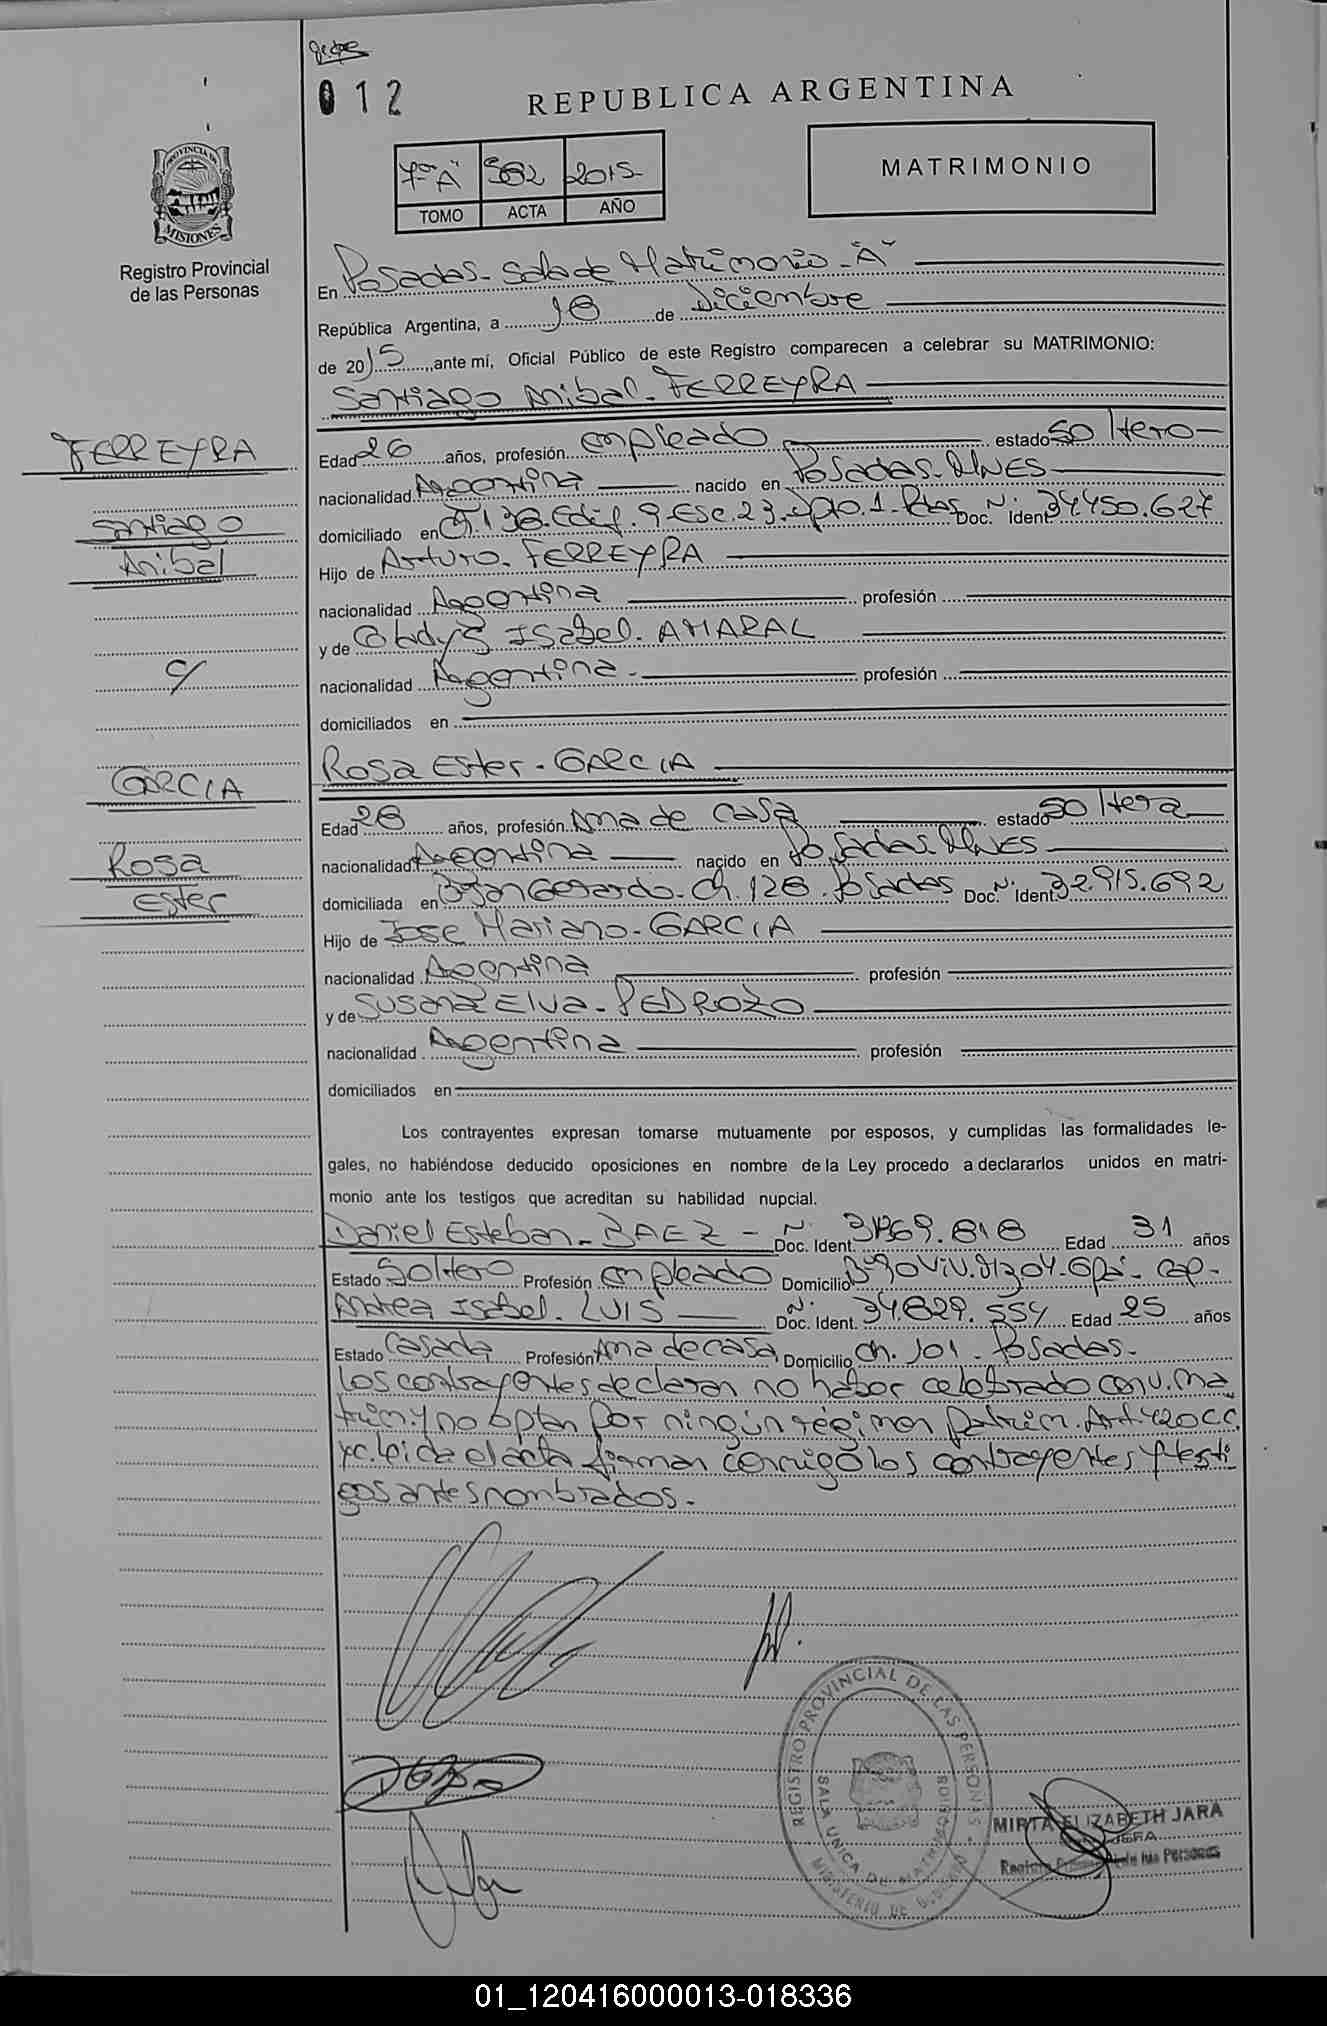 012
REPUBLICA ARGENTINA
PROVINCIA DE
MISIONES
Registro Provincial
de las Personas
MATRIMONIO
7º "A" 582 2015-
TOMO ACTA AÑO
En Posadas - Sala de Matrimonio - "A"
República Argentina, a 18 de Diciembre
de 2015, ante mí, Oficial Público de este Registro comparecen a celebrar su MATRIMONIO:
Santiago Anibal - FERREYRA
FERREYRA
Santiago
Anibal
c/
GARCIA
Rosa
Ester
Edad 26 años, profesión empleado estado soltero -
nacionalidad Argentina nacido en Posadas - Mnes
domiciliado en Ch. 138. Edif. 9. Esc. 23. Dpto. 1. Pdas Doc. Nº Ident 34.450.627
Hijo de Arturo - FERREYRA
nacionalidad Argentina profesión
y de Gladys Isabel - AMARAL
nacionalidad Argentina - profesión
domiciliados en
Rosa Ester - GARCIA
Edad 28 años, profesión Ama de casa estado soltera
nacionalidad Argentina nacido en Posadas - Mnes
domiciliada en Bº San Gerardo - Ch. 128 - Posadas Doc. Nº Ident 32.915.692
Hijo de Jose Mariano - GARCIA
nacionalidad Argentina profesión
y de Susana Elva - PEDROZO
nacionalidad Argentina profesión
domiciliados en
Los contrayentes expresan tomarse mutuamente por esposos, y cumplidas las formalidades le-
gales, no habiéndose deducido oposiciones en nombre de la Ley procedo a declararlos unidos en matri-
monio ante los testigos que acreditan su habilidad nupcial.
Daniel Esteban - BAEZ - Nº Doc. Ident. Edad 31 años
Estado Soltero Profesión empleado Domicilio
Isabel - LUIS Nº Doc. Ident. 34.829.554 Edad 25 años
Estado Casada Profesión Ama de casa Domicilio Ch. 101 - Posadas -
Los contrayentes declaran no haber celebrado conv. ma
trim. y no optan por ningún régimen patrim. Art. 420 CC
yc. Leida el acta firman conmigo los contrayentes y testi
gos antes nombrados -
REGISTRO PROVINCIAL DE LAS PERSONAS
SALA UNICA DE MATRIMONIOS
MINISTERIO DE GOBIERNO
MIRTA ELIZABETH JARA
JEFA
Registro Provincial de las Personas
01_120416000013-018336